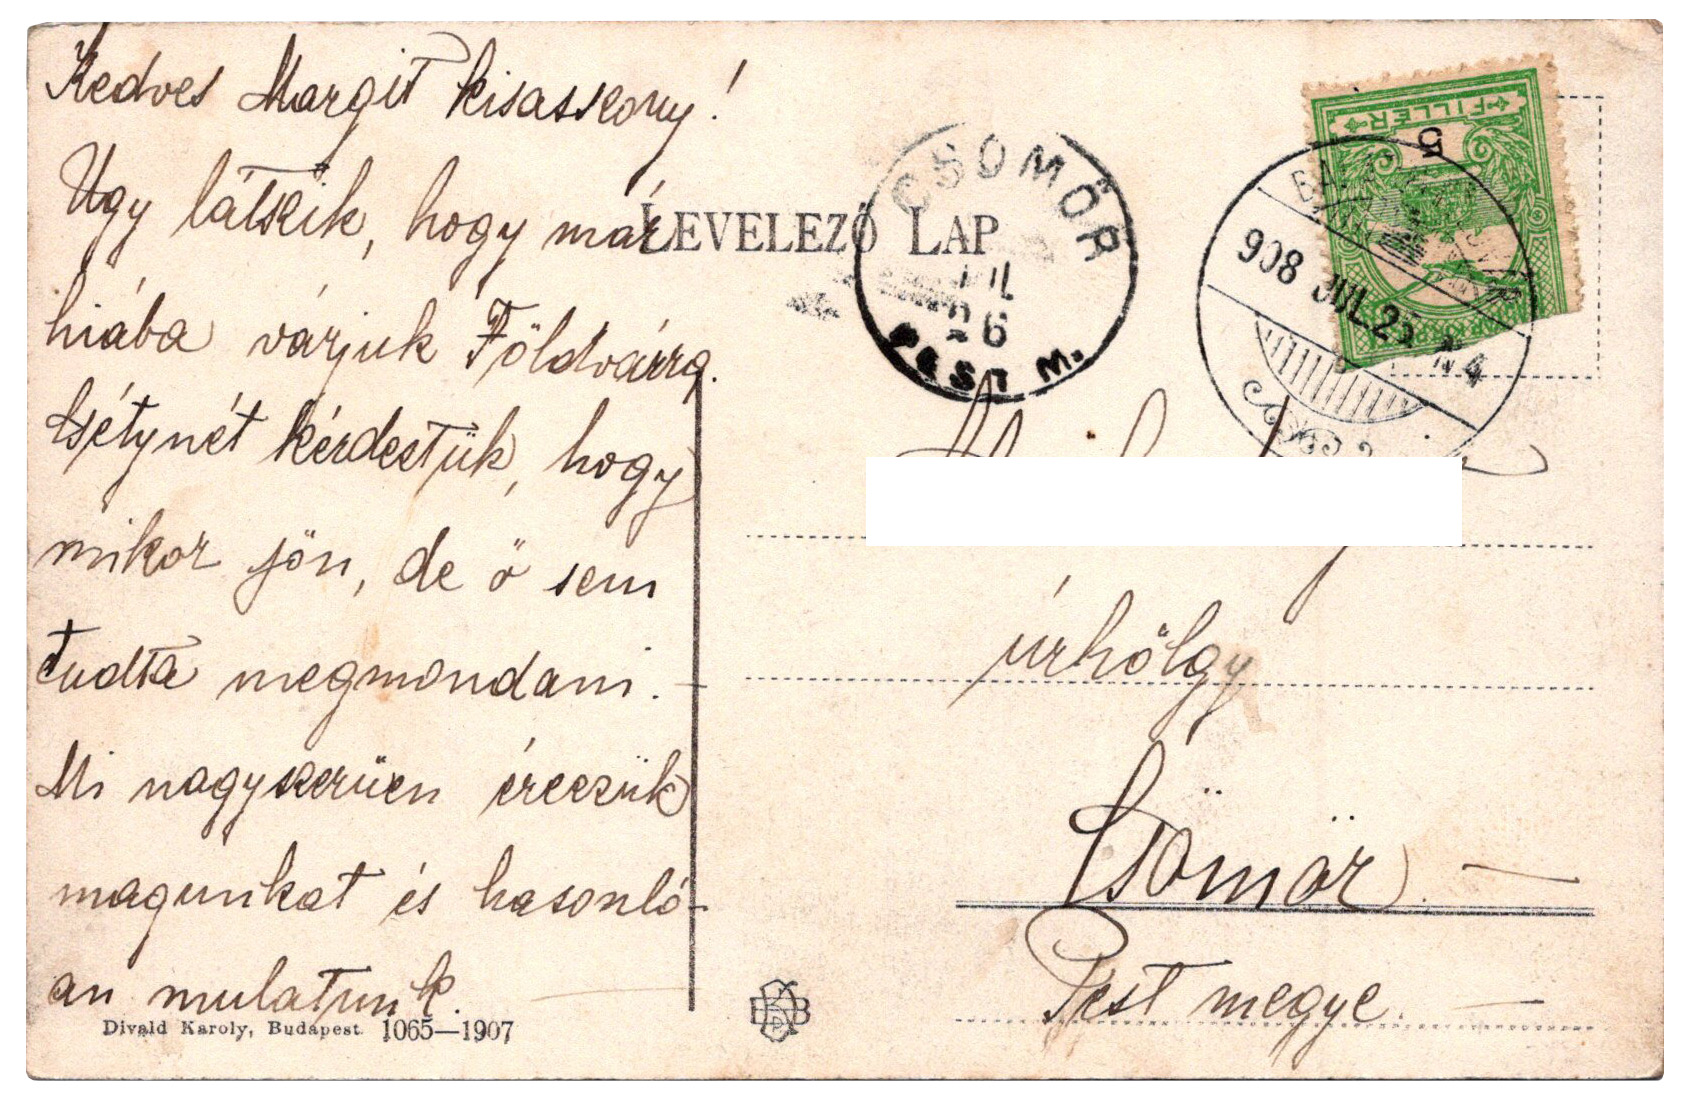 Kedves Margit kisasszony!
Ugy látszik, hogy már
hiába várjuk Földvárra.
kérdeztük, hogy
mikor jön, de ő sem
tudta megmondani. –
Mi nagyszerüen érezzük
magunkat és hasonló-
an mulatunk.
Divald Karoly, Budapest. 1065—1907
LEVELEZŐ LAP
CSOMÖR
JUL
26
PEST M.
FILLÉR
5
908 JUL. 25 N4
úrhölgy
Csömör. —
Pest megye. —